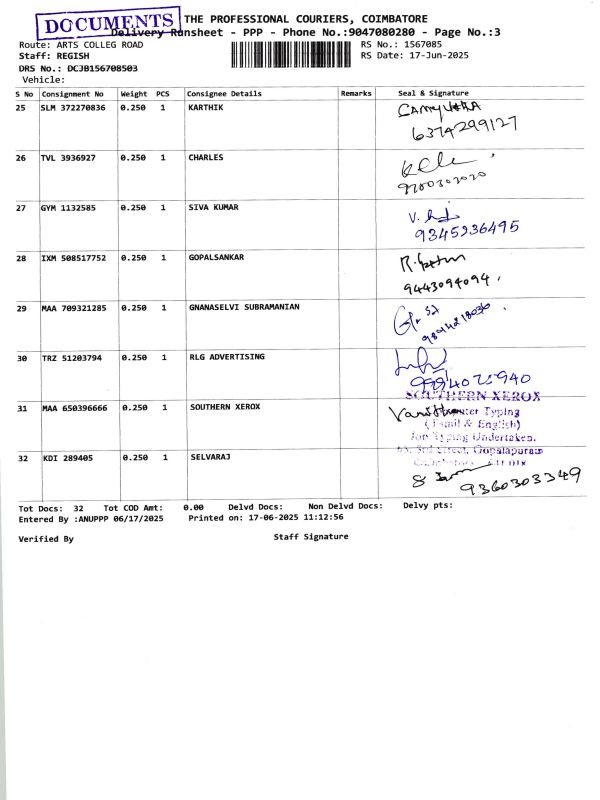 DOCUMENTS
THE PROFESSIONAL COURIERS, COIMBATORE
Delivery Runsheet - PPP - Phone No.:9047080280 - Page No.:3
Route: ARTS COLLEG ROAD
RS No.: 1567085
Staff: REGISH
RS Date: 17-Jun-2025
DRS No.: DCJB156708503
Vehicle:
S No Consignment No Weight PCS Consignee Details Remarks Seal & Signature
25 SLM 372270836 0.250 1 KARTHIK
6374299127
26 TVL 3936927 0.250 1 CHARLES
9700302020
27 GYM 1132585 0.250 1 SIVA KUMAR
9345936495
28 IXM 508517752 0.250 1 GOPALSANKAR
9443094094
29 MAA 709321285 0.250 1 GNANASELVI SUBRAMANIAN
30 TRZ 51203794 0.250 1 RLG ADVERTISING
SOUTHERN XEROX
31 MAA 650396666 0.250 1 SOUTHERN XEROX
Typing
(Tamil & English)
Job Typing Undertaken.
Street, Gopalapuram
32 KDI 289405 0.250 1 SELVARAJ
9360303349
Tot Docs: 32 Tot COD Amt: 0.00 Delvd Docs: Non Delvd Docs: Delvy pts:
Entered By :ANUPPP 06/17/2025 Printed on: 17-06-2025 11:12:56
Verified By Staff Signature